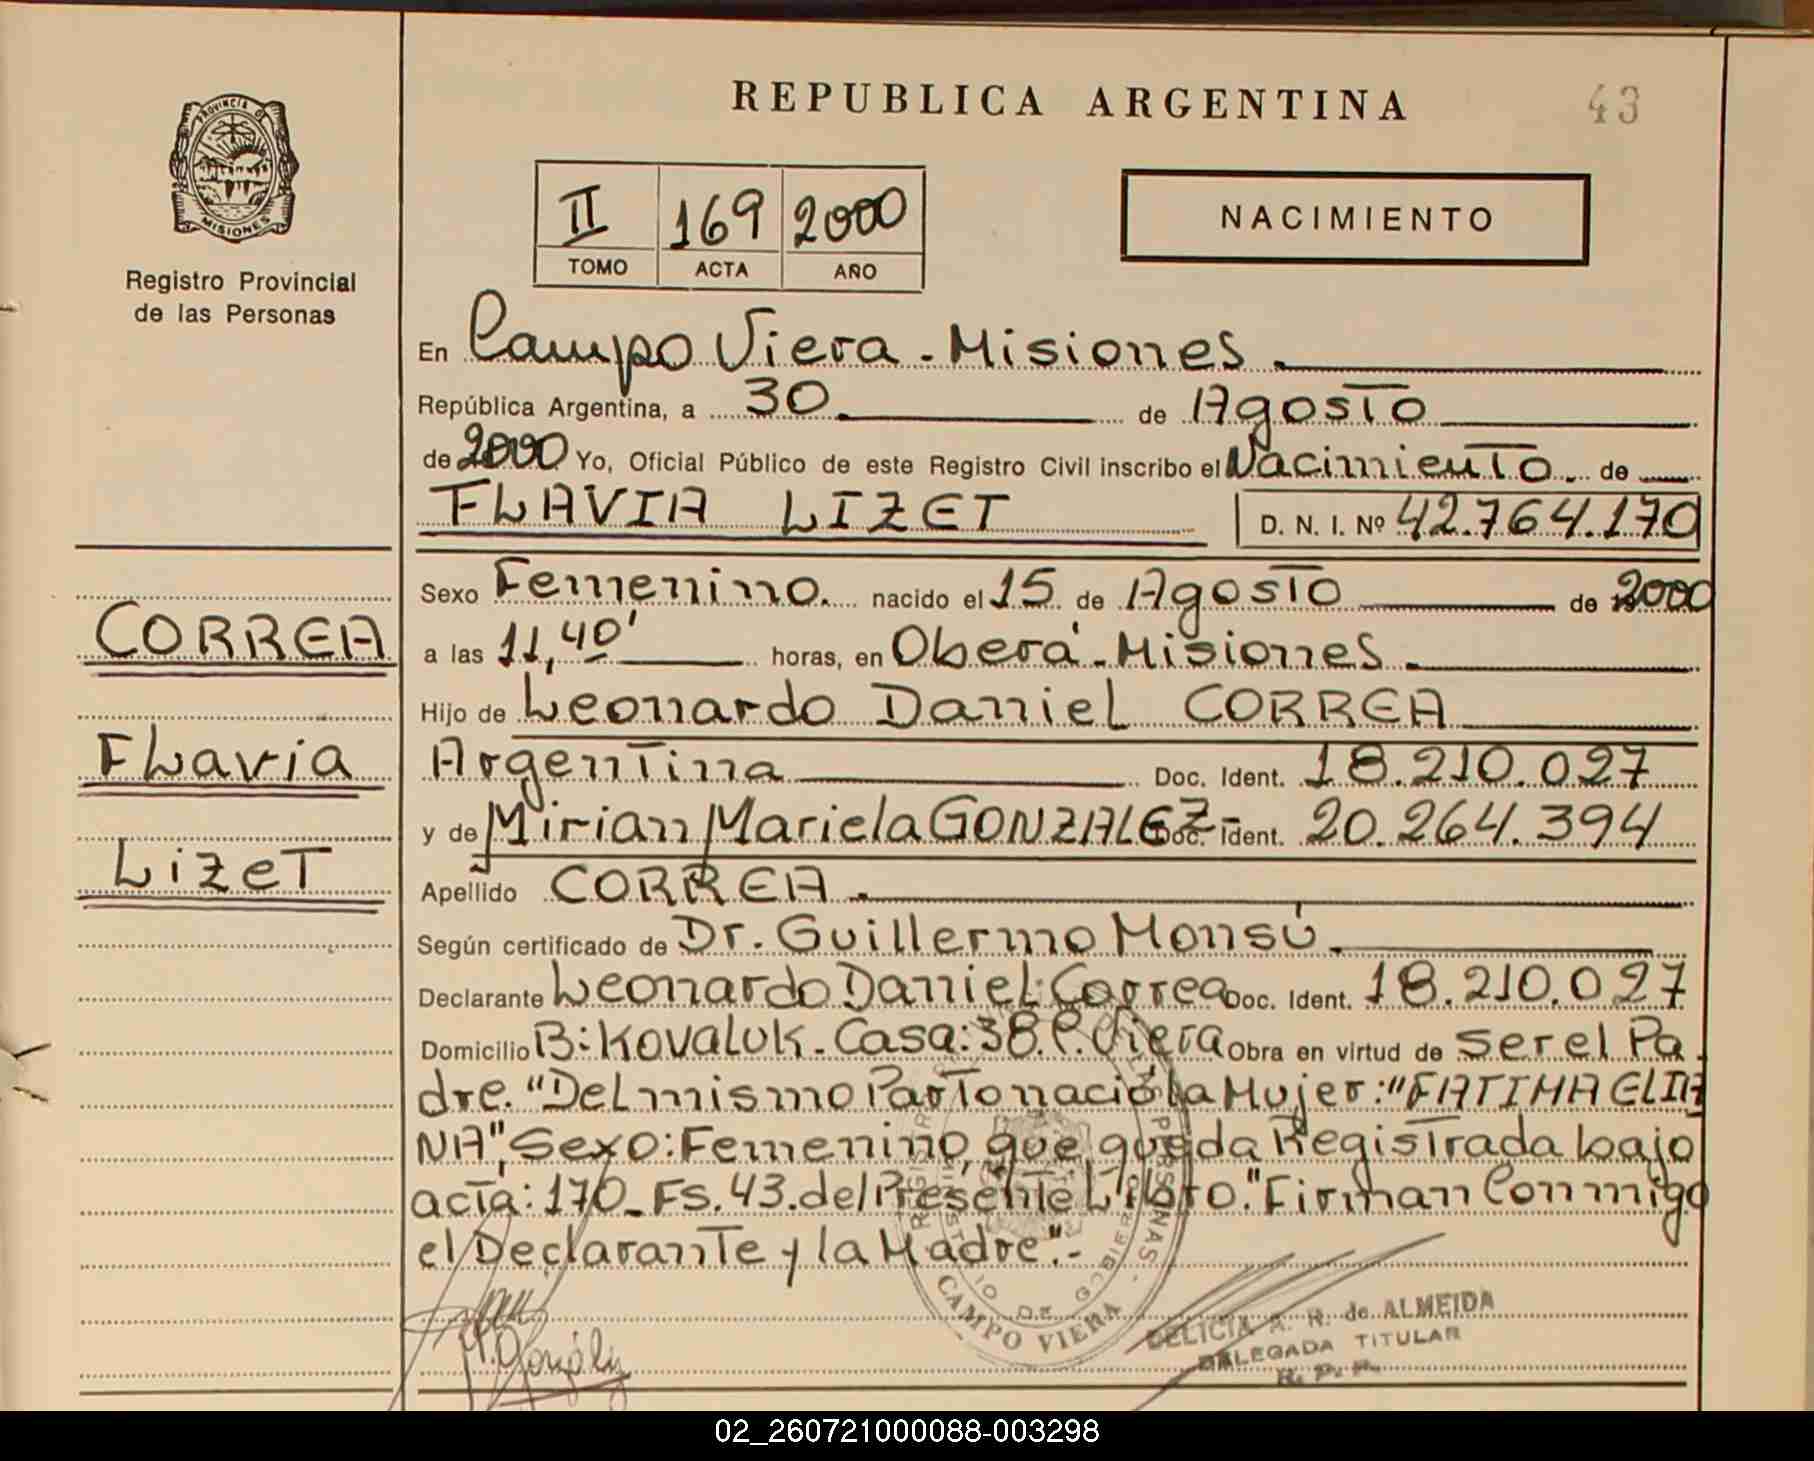 REPUBLICA ARGENTINA
43
PROVINCIA DE
MISIONES
Registro Provincial
de las Personas
II 169 2000
TOMO ACTA AÑO
NACIMIENTO
En Campo Viera - Misiones.
República Argentina, a 30 de Agosto
de 2000 Yo, Oficial Público de este Registro Civil inscribo el Nacimiento de
FLAVIA LIZET D. N. I. Nº 42.764.170
Sexo Femenino. nacido el 15 de Agosto de 2000
CORREA
a las 11,40' horas, en Oberá - Misiones.
Hijo de Leonardo Daniel CORREA
Flavia
Argentina Doc. Ident. 18.210.027
y de Mirian Mariela GONZALEZ- Doc. Ident. 20.264.394
Lizet
Apellido CORREA.
Según certificado de Dr. Guillermo Monsú.
Declarante Leonardo Daniel Correa Doc. Ident. 18.210.027
Domicilio B: Kovaluk. Casa: 38. C. Viera Obra en virtud de ser el Pa-
dre. "Del mismo Parto nació la Mujer: "FATIMA ELIA
NA", Sexo: Femenino, que queda Registrada bajo
acta: 170_Fs. 43. del Presente Libro." Firman Conmigo
el Declarante y la Madre".-
CAMPO VIERA
DELICIA A. R. de ALMEIDA
DELEGADA TITULAR
R. P. P.
02_260721000088-003298